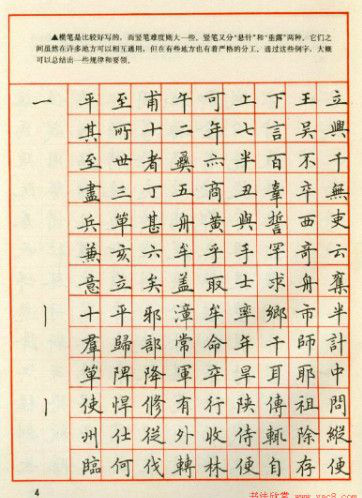 ▲横笔是比较好写的，而竖笔难度则大一些。竖笔又分“悬针”和“垂露”两种，它们之
间虽然在许多地方可以相互通用，但在有些地方也有着严格的分工，透过这些例字，大概
可以总结出一些规律和要领。
一 平 至 甫 午 可 上 下 王 立
其 所 十 二 年 七 言 吴 興
至 世 者 爽 六 半 百 不 千
盡 三 丁 五 商 丑 辜 卒 無
兵 單 甚 舟 黄 與 誓 西 吏
兼 亥 六 牟 乎 手 罕 奇 云
意 立 矣 盖 取 士 求 舟 棄
丨 十 平 邪 漳 牟 率 鄉 市 半
羣 歸 部 常 命 年 干 師 計
單 陴 降 軍 卒 旱 耳 耶 中
丨 使 悍 修 有 行 陝 傳 祖 問
州 仕 從 外 收 侍 輒 除 縱
臨 何 伐 轉 林 便 自 存 便
4
书法欣赏 www.yac8.com